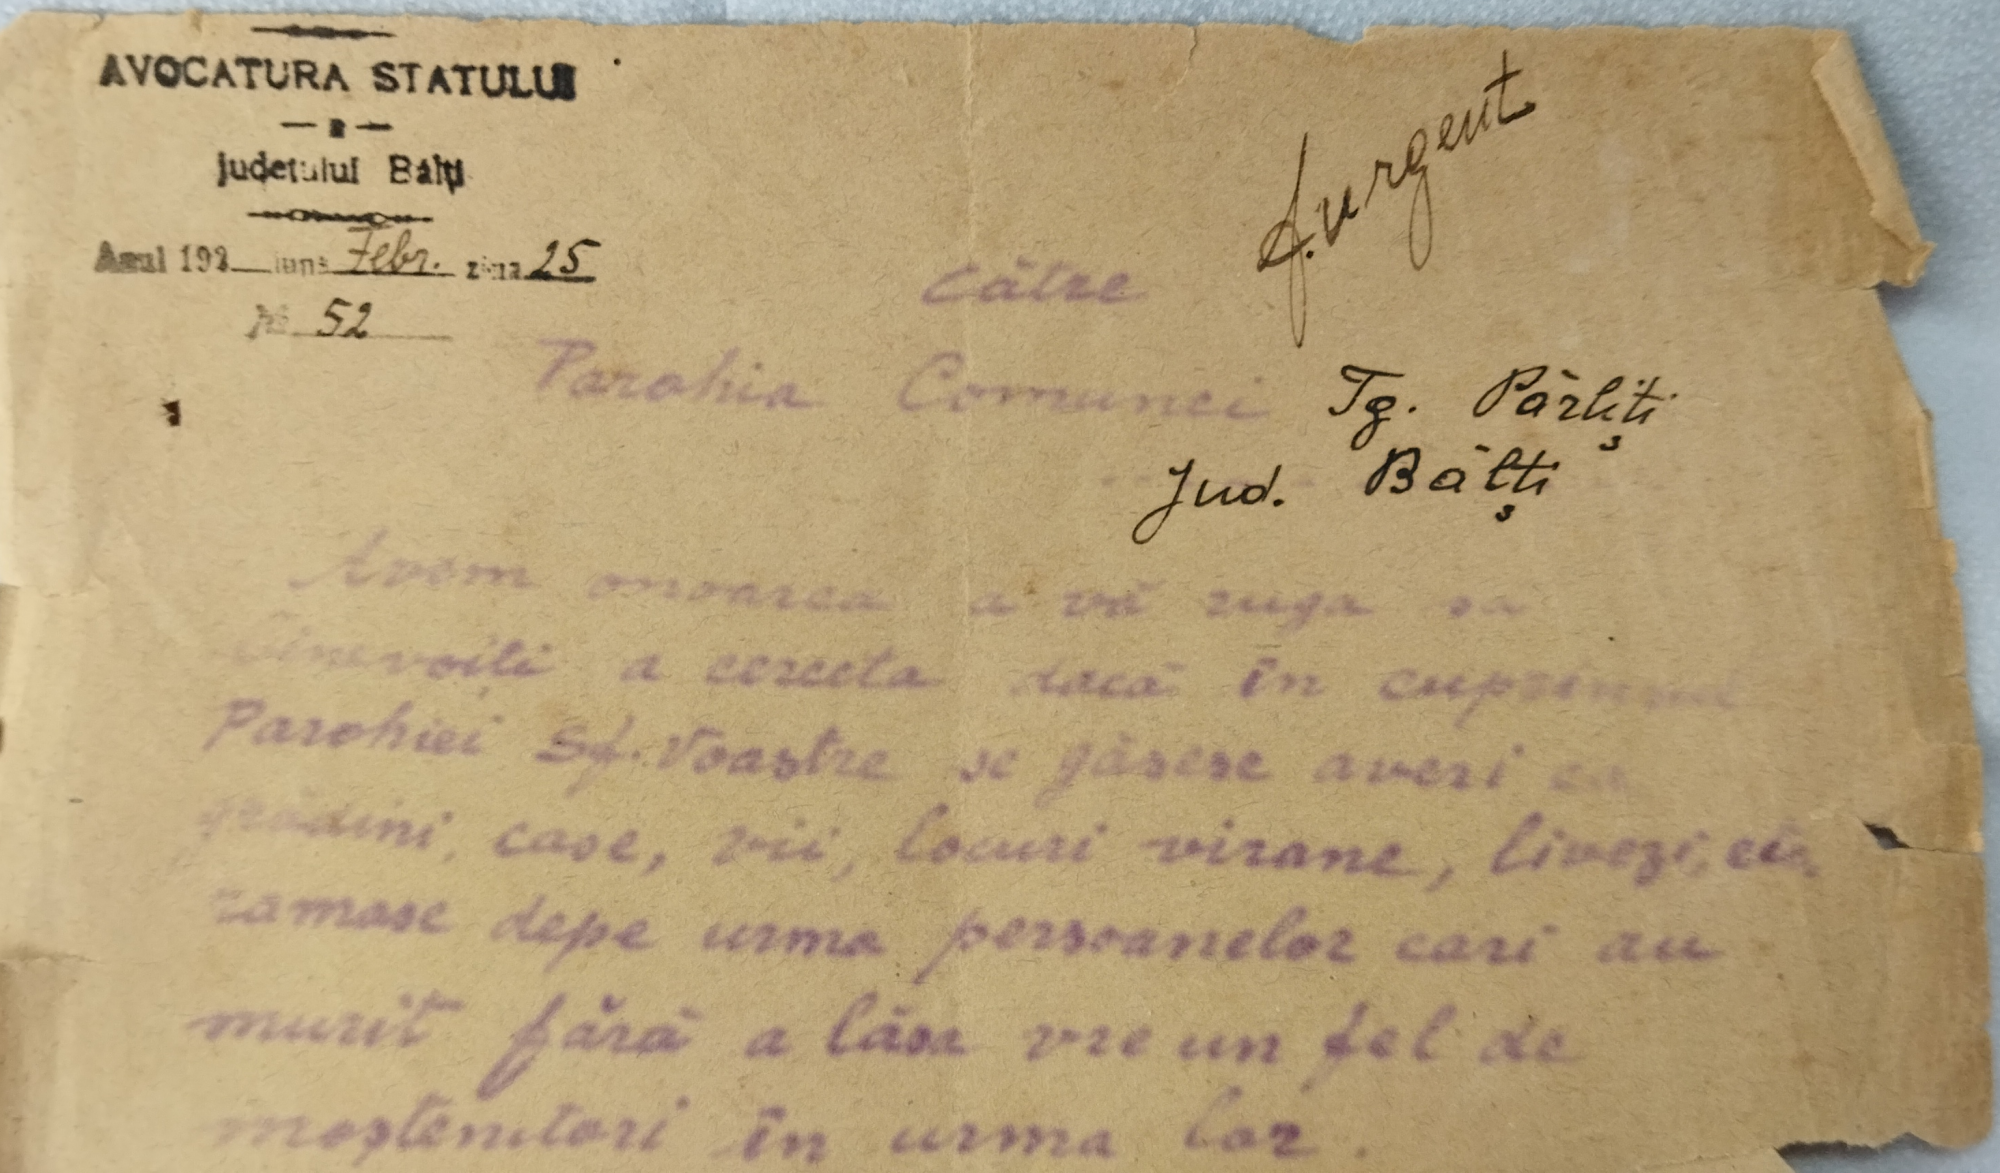 AVOCATURA STATULUI
Județului Bălți
Anul 192 luna Febr. ziua 25
№ 52
f. urgent
Către
Parohia Comunei Tg. Părliți
Jud. Bălți
Avem onoarea a vă ruga sa
binevoiți a cerceta dacă în cuprinsul
Parohiei Sf. Voastre se găsesc averi ca
grădini, case, vii, locuri virane, livezi, etc,
ramase depe urma persoanelor cari au
murit fără a lăsa vre un fel de
moștenitori în urma lor.